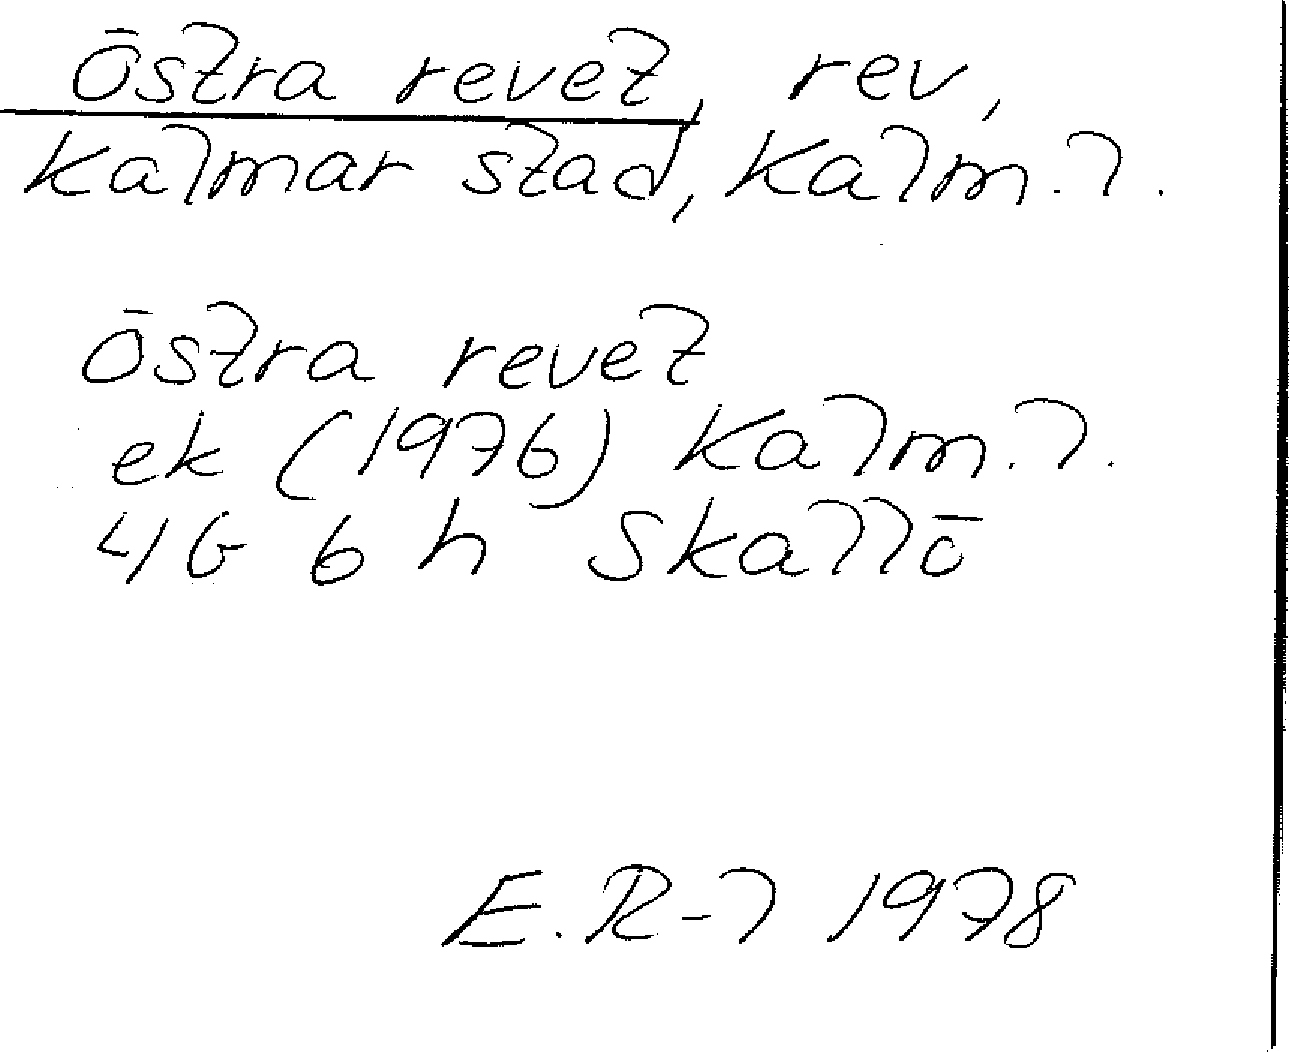 Östra revet, rev,
Kalmar stad, Kalm. l.
Östra revet
ek (1976) Kalm. l.
4G 6 h Skallö
E. R-l 1978